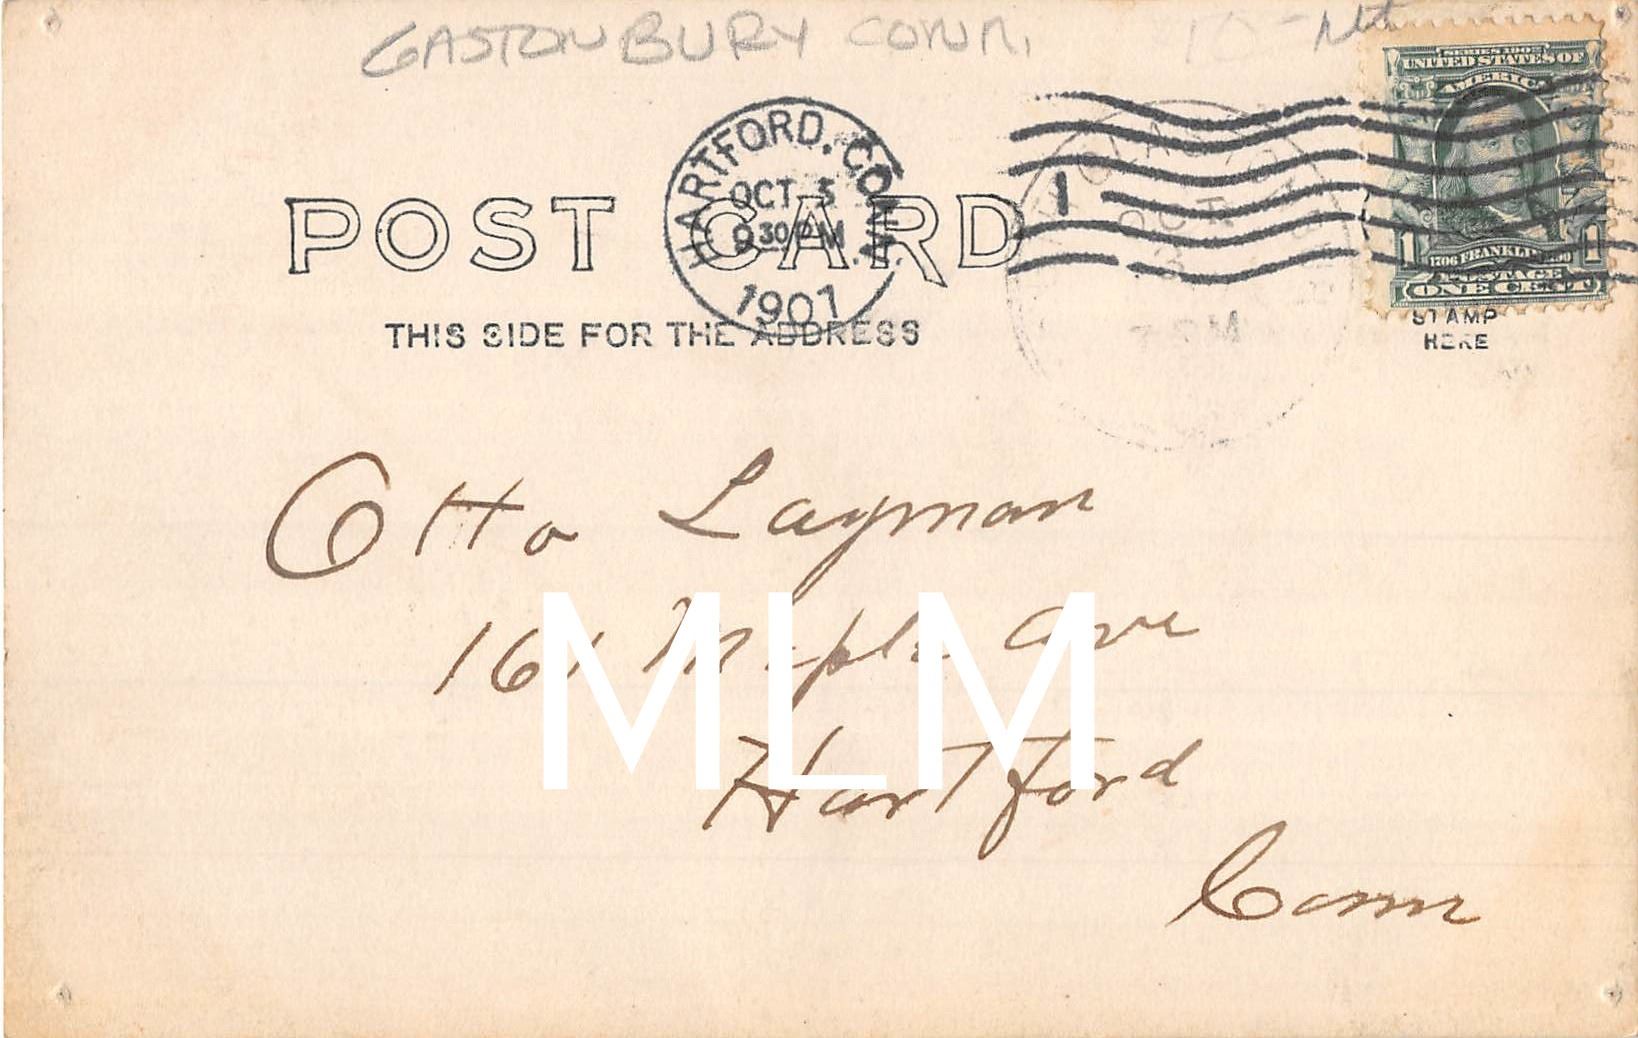 GASTONBURY CONN.
SERIES 1902
UNITED STATES OF
AMERICA
1706 FRANKLIN 1790
1 1
POSTAGE
ONE CENT
HARTFORD, CONN.
OCT 5
930 PM
1907
1
OCT
PM
POST CARD
THIS SIDE FOR THE ADDRESS
STAMP
HERE
Otto Layman
161 Maple Ave
Hartford
Conn
MLM